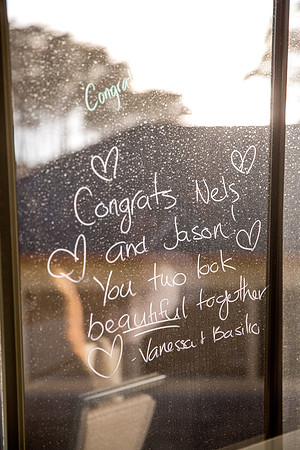 Congra
Congrats Nels
and Jason!
You two look
beautiful together
- Vanessa + Basilio